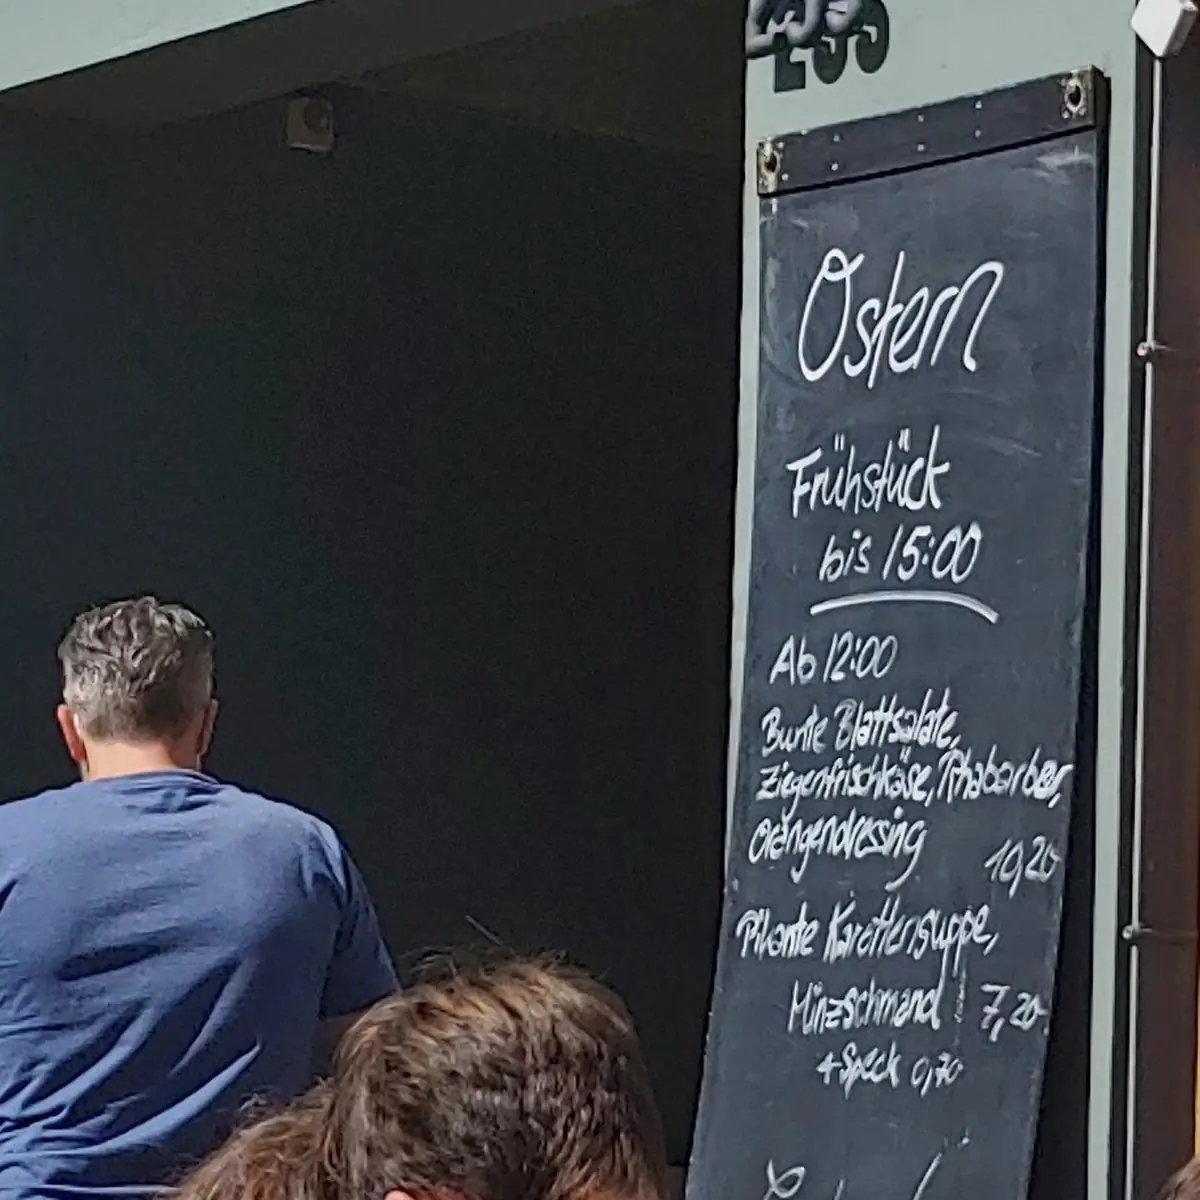 Ostern
Frühstück
bis 15:00
Ab 12:00
Bunte Blattsalate,
Ziegenfrischkäse, Rhabarber,
Orangendressing 10,20
Pikante Karottensuppe,
Minzschmand 7,20
+ Speck 0,70